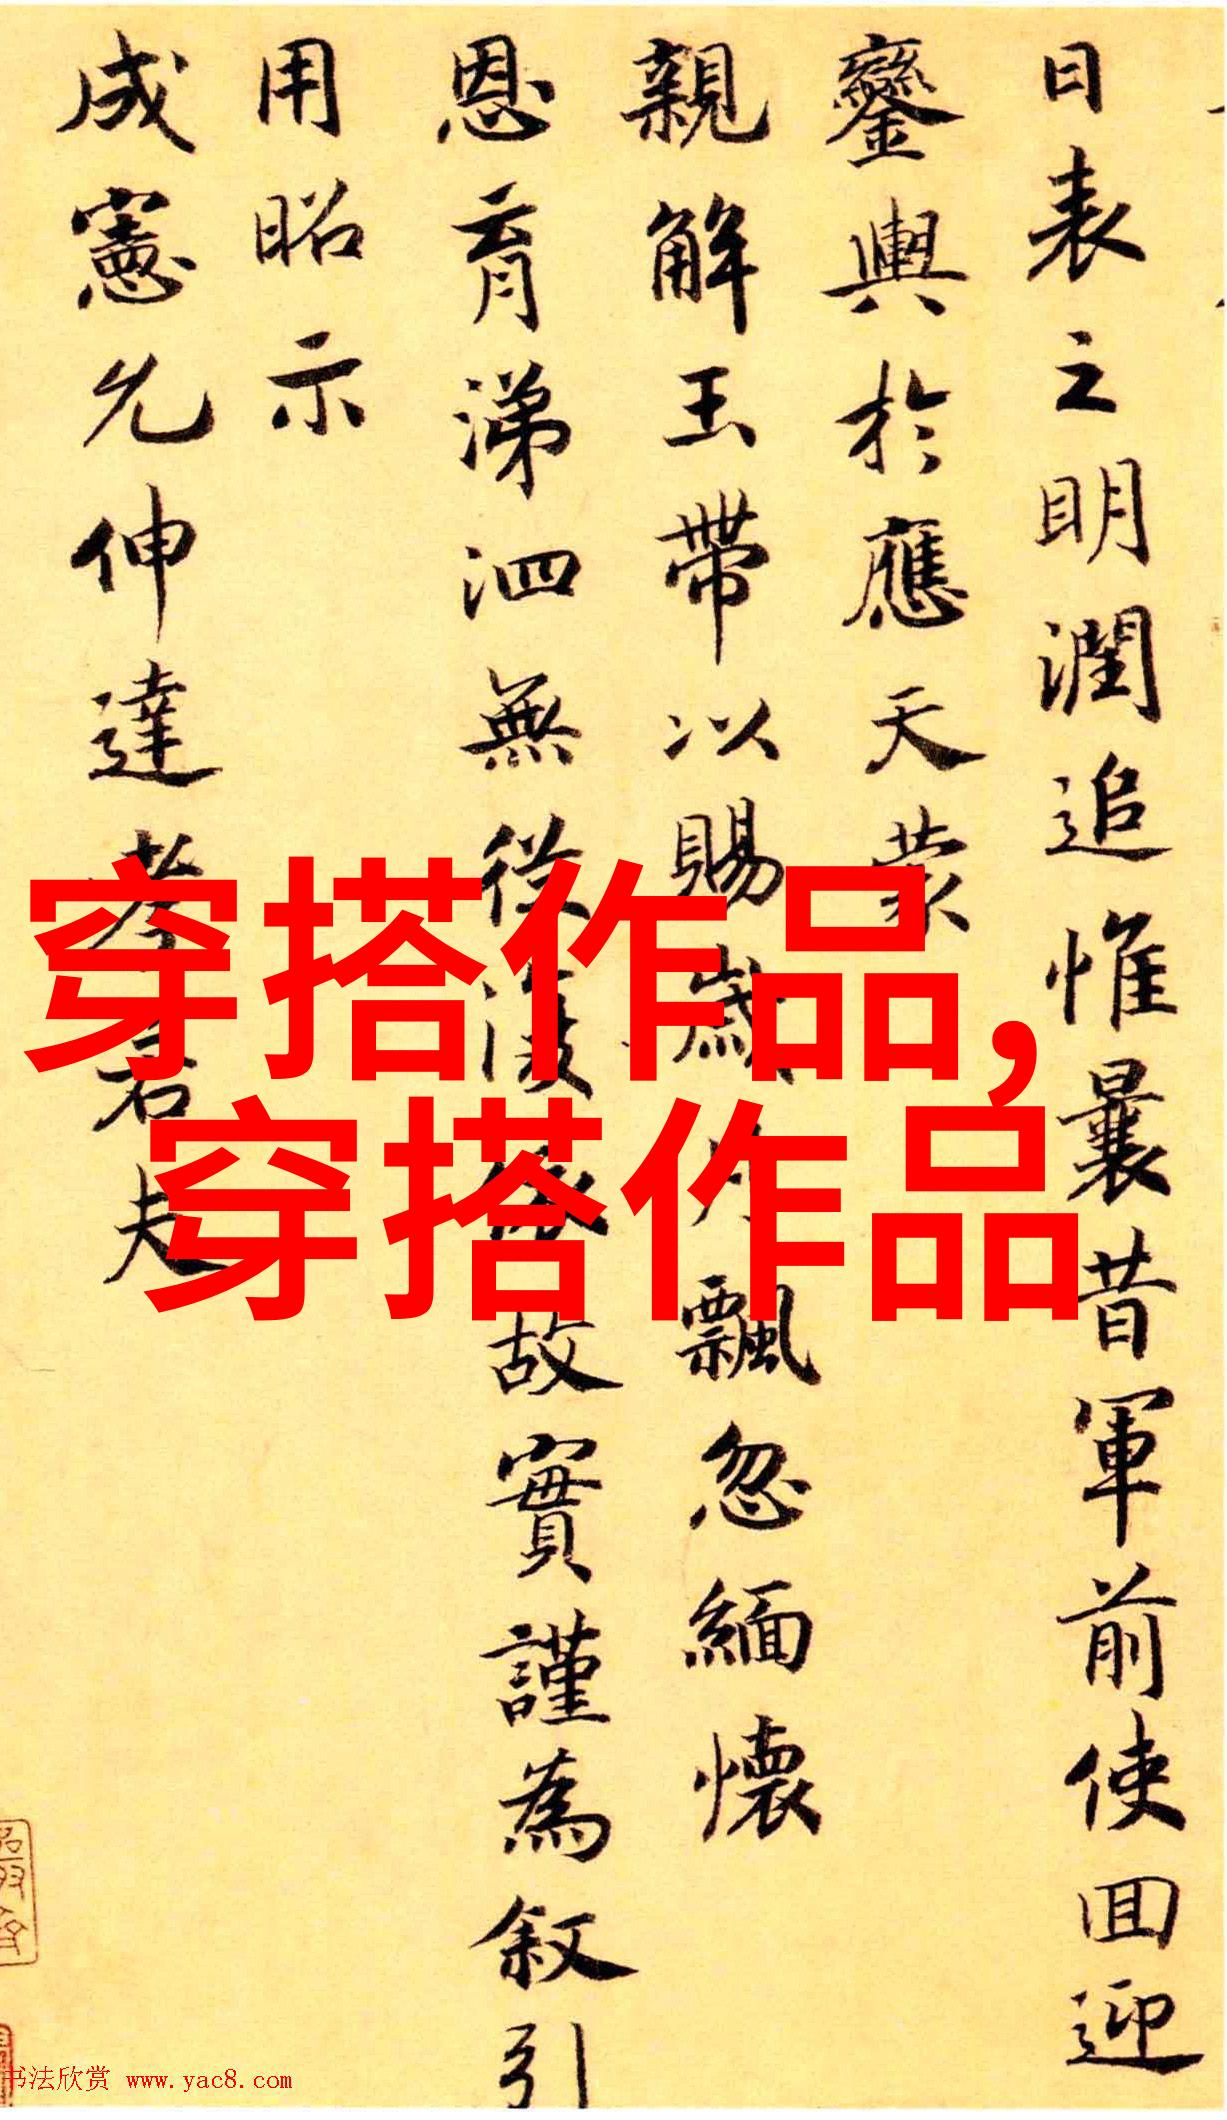 日表之明潤追惟曩昔軍前使回迎
鑾輿於應天蒙
親解玉帶以賜歲月飄忽緬懷
恩育涕泗無從浚依故實謹為叙引
用昭示
成憲允伸達孝若夫
穿搭作品,
穿搭作品
书法欣赏 www.yac8.com